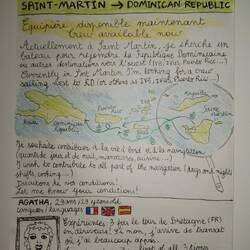 SAINT-MARTIN → DOMINICAN REPUBLIC
Equipière disponible maintenant
Crew available now
Actuellement à Saint Martin, je cherche un
bateau pour rejoindre la République Dominicaine
ou autres destinations vers l'ouest
Currently in Saint Martin, I'm looking for a crew
sailing west to RD (or others is
Je souhaite contribuer à la vie à bord et à la navigation
(quarts de jour et de nuit, manœuvres, cuisine ...)
I wish to contribute to all part of the navigation (days and nights
shifts, cooking...)
Discutons de vos conditions!
Let me know your conditions!
AGATHA, 29 ans / 29 years old
Langues / languages
Expériences: J'ai fait le tour de Bretagne (FR)
en dériveur. Là non, j'arrive de transat
où j'ai beaucoup appris.
first of all